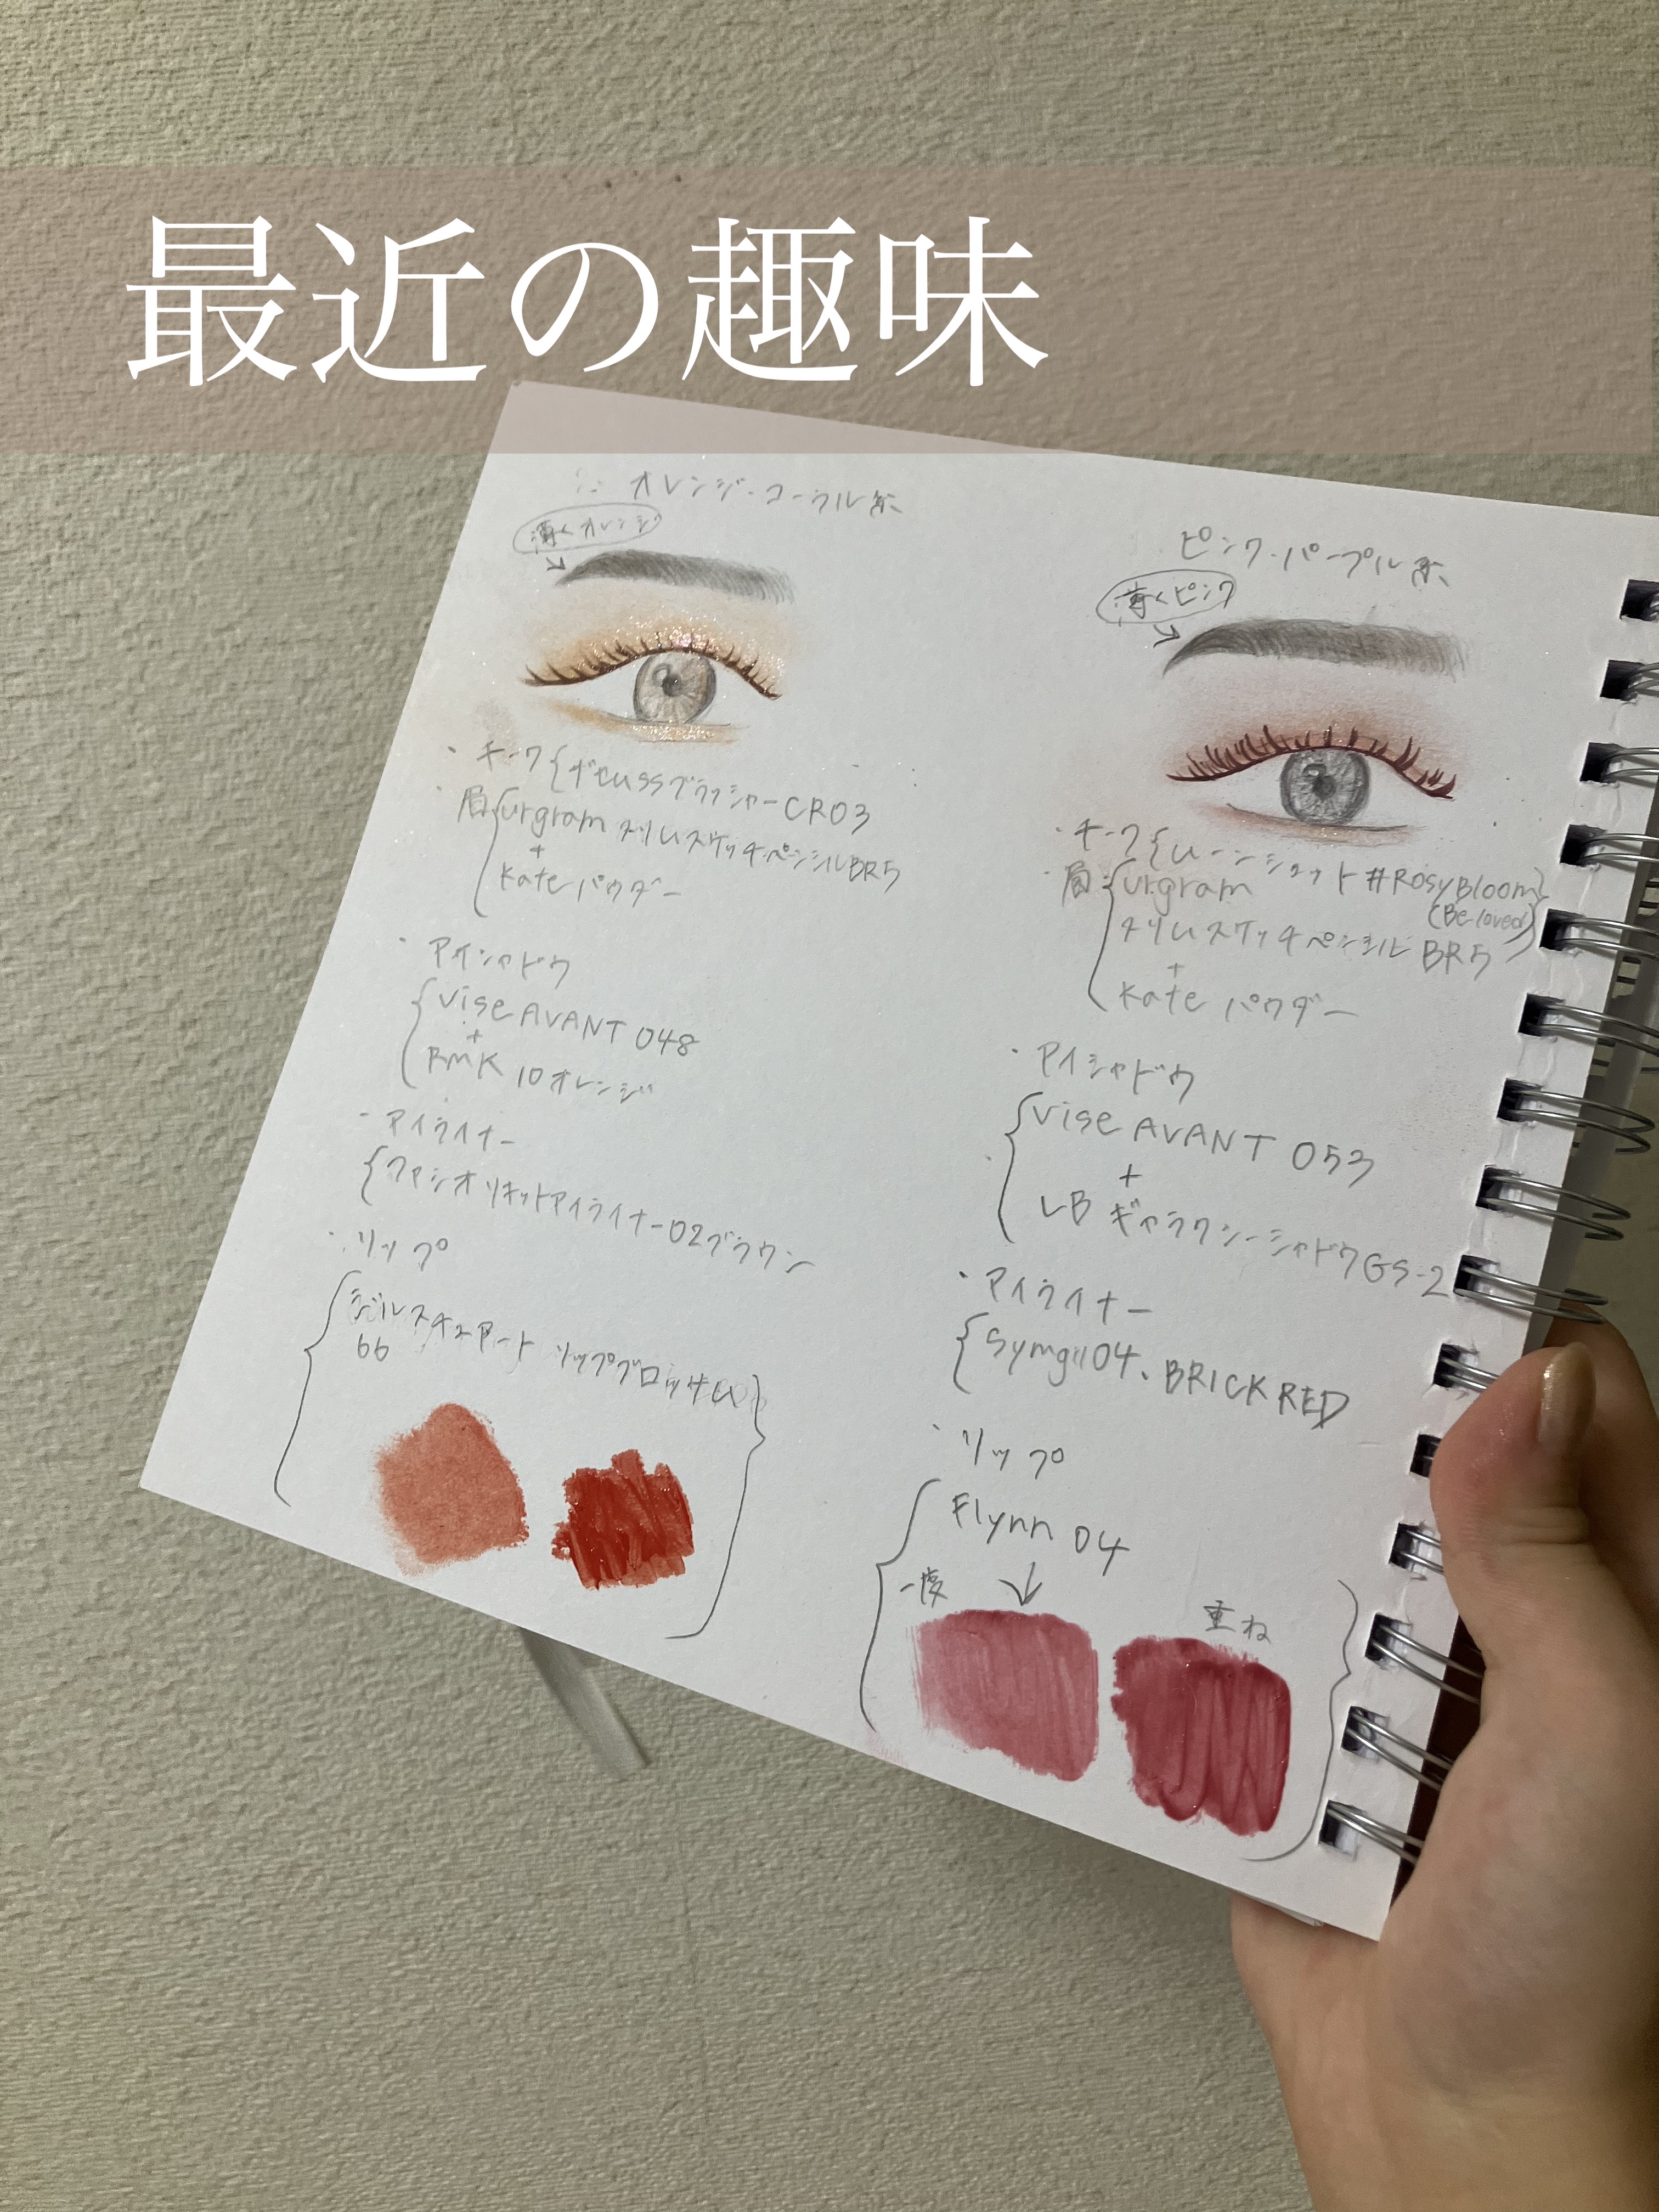 最近の趣味
オレンジ・コーラル系
薄くオレンジ
・チーク{ デュussブラッシャーCR03
眉{urgram スリムスケッチペンシルBR5
+
Kate パウダー
・アイシャドウ
{Vise AVANT 048
+
RMK 10オレンジ
・アイライナー
{ファシオ リキッドアイライナー02ブラウン
・リップ
{ジルスチュアート リップブロッサム}
66
ピンク・パープル系
薄くピンク
・チーク{ムーンショット #RosyBloom}
(Beloved)
・眉:{urgram
スリムスケッチペンシル BR5
+
Kate パウダー
・アイシャドウ
{Vise AVANT 053
+
LB ギャラクシーシャドウGS-2
・アイライナー
{Symgil04. BRICK RED
・リップ
{Flynn 04
一度 ↓
重ね